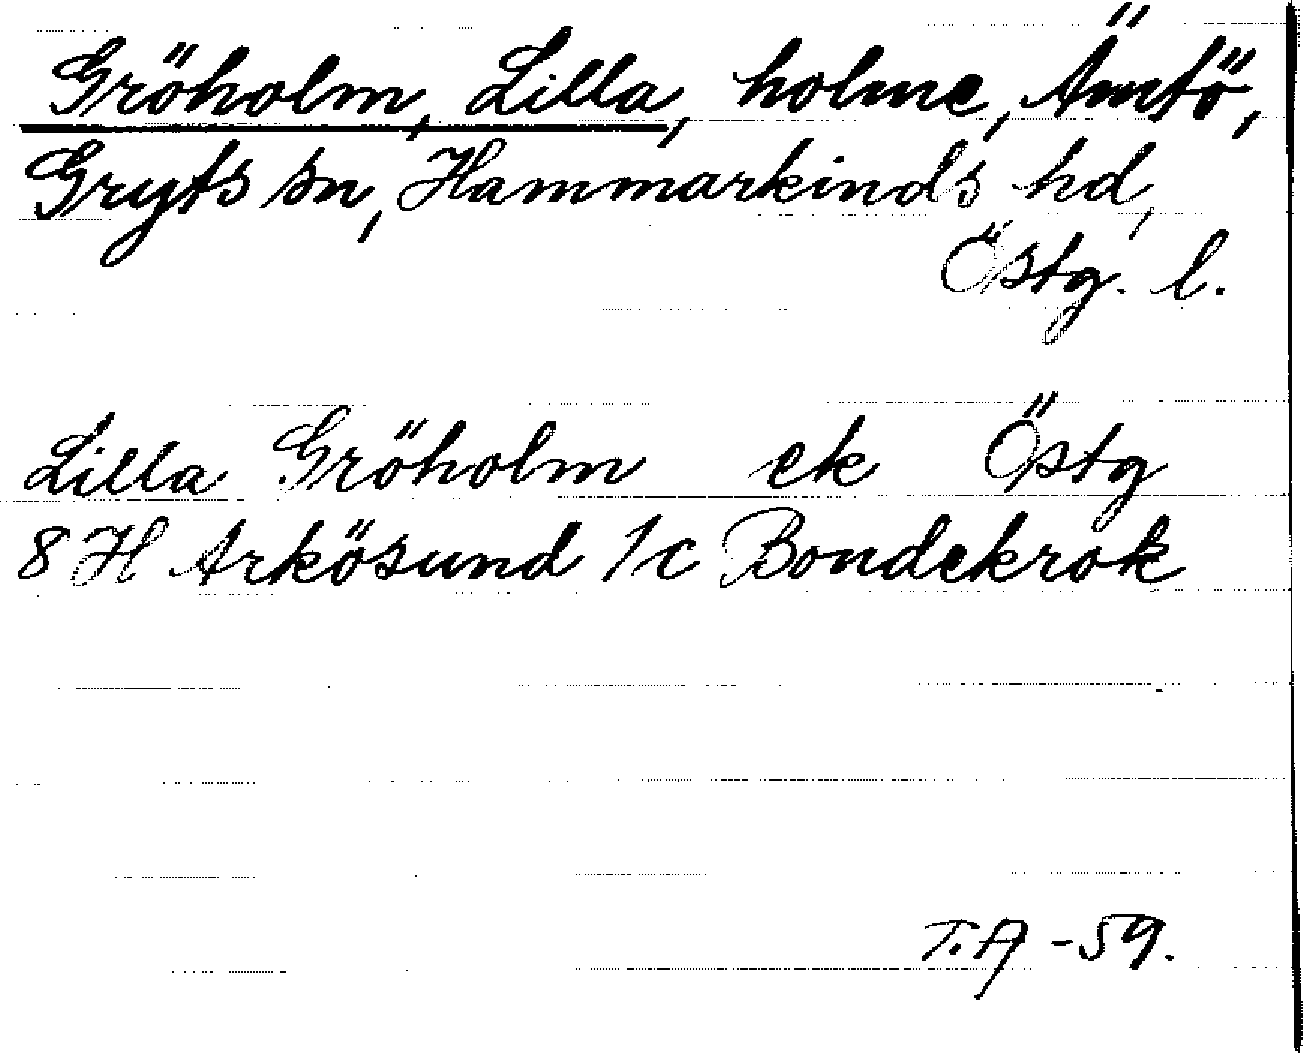 Gröholm, Lilla, holme, Ämtö,
Gryts sn, Hammarkinds hd,
Östg. l.
Lilla Gröholm ek Östg
8 H Arkösund 1c Bondekrok
T.A -59.